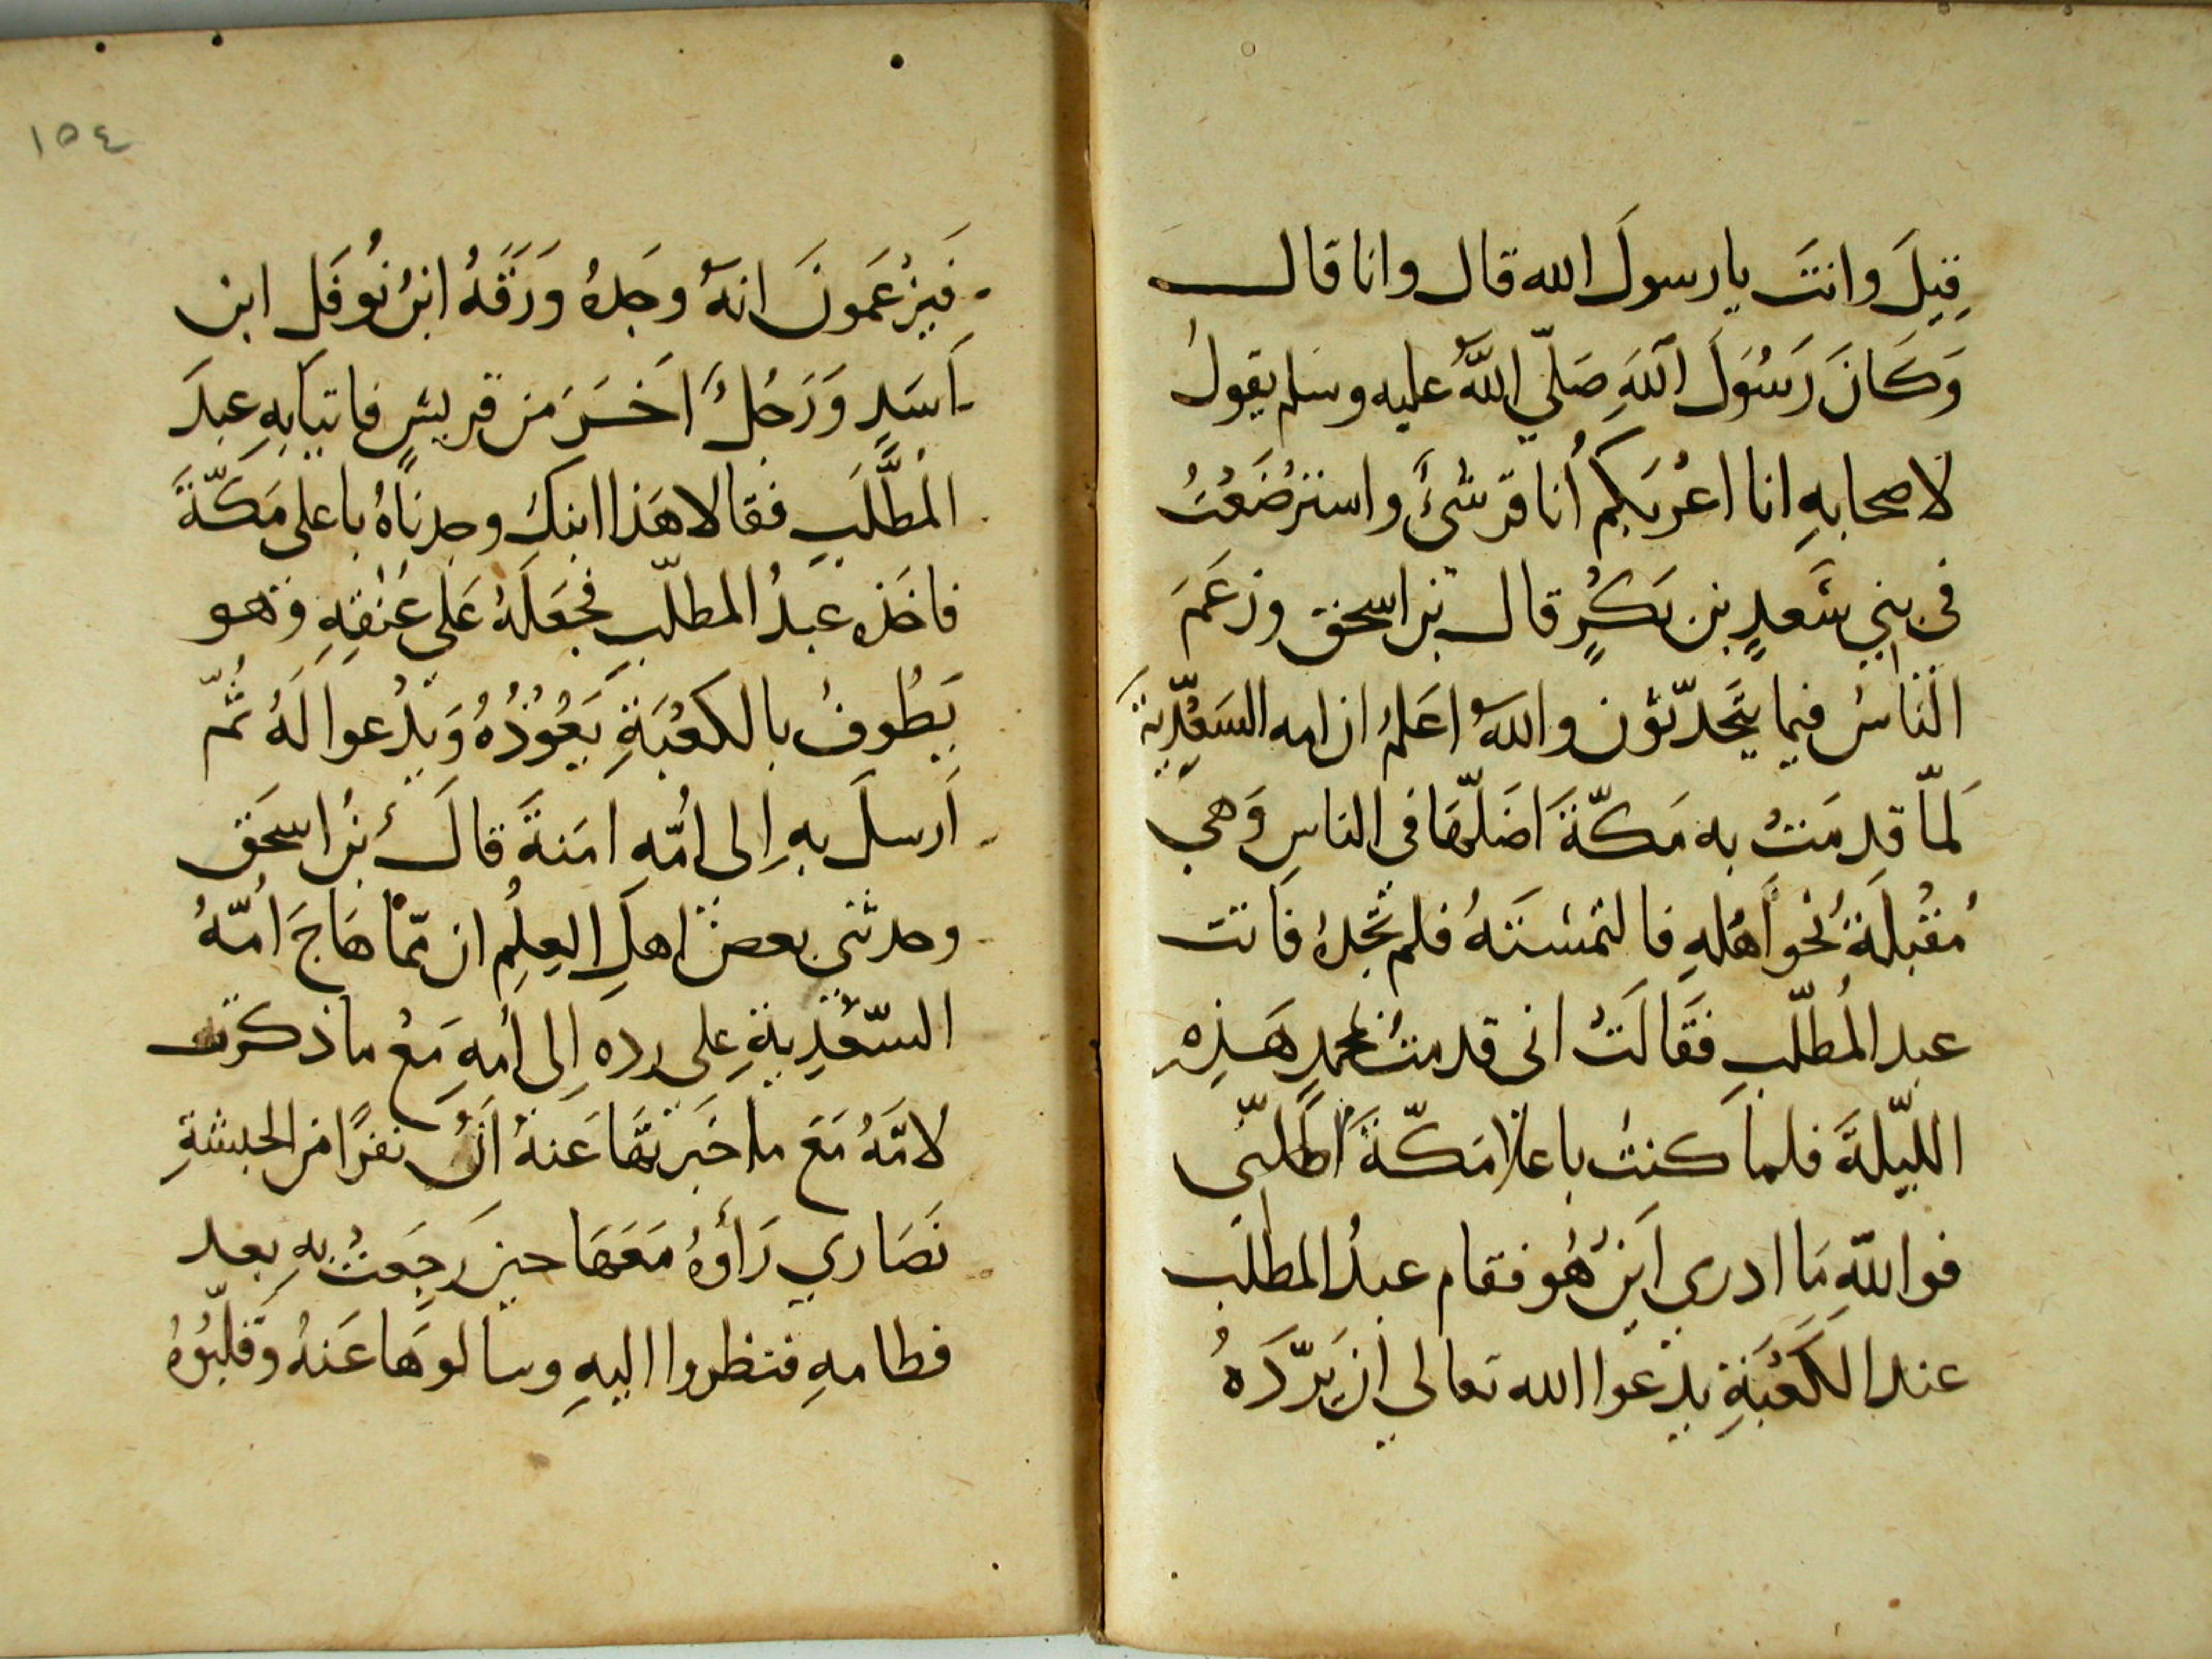 قِيلَ وانتَ يا رسولَ الله قال وانا قال
وَكَانَ رَسُوَلَ اللهَِ صَلّي اللهُ عليه وسلم يقولُ
لاصحابهِ انا اعْرَبكم أنا قرشيٌ واسترْضَعْتُ
في بني سَعدٍ بن بَكْرٍ قال بن اسحق وزعَمَ
النَاسُ فيما يتَحدّثون واللهُ اعَلمُ ان امه السَعْدِّيةَ
لَمّا قدِمَتْ به مَكّةَ اضَلّهَا في الناسِ وَهي
مُقْبلةٌ نْحوَ أهْلهِ فالتمسَتَهُ فلم تَجْدهُ فاَتت
عبد المُطلّبِ فَقَالَتْ اني قدمتُ بمحمدٍ هَذِهِ
الليّلةَ فلما كنتُ باعلا مَكّةَ اَضَلني
فواللهِ مَا ادري اَينَ هُو فقام عبدُ المطلَب
عند الكَعْبَةِ يدْعوا الله تعالي انْ يَردّدَهُ
١٥٤
فَيَزْعَمونَ انهُ وجَدهُ وَرَقَهُ ابنُ نُوفَل ابن
اَسَدٍ وَرَجُلٌ اَخَرَ من قريشٍ فاتيَا بهِ عبدَ
المْطَّلَبِ فقالا هَذا ابنكِ وجدنَاهُ باعلى مَكّةَ
فاخَذه عبدُ المطلّبِ فجَعَلَهُ عَلي عُنْقِهِ وَهو
يَطُوفُ بالكعْبَةِ يَعُوْذُهُ وَيَدْعوا لَهُ ثُمّ
اَرسلَ بهِ اِلى اُمّهِ امَنةَ قالَ بنُ اسحَق
وحدثني بعضُ اهلِ العِلمِ ان ممّا هَاجَ اُمّهُ
السّعْدِيةِ علي ردهِ اِلى اُمهِ مَعْ ما ذكرت
لامّهُ مَعَ ما خَبَرتهَا عَنهُ انَّ نفرًا من الحبشةِ
نَصَاري رَأَوهُ مَعَهَا حينَ رجَعتْ بهِ بعد
فطامهِ فنظروا اليهِ وسالوهَا عَنهُ وَقلّبُوهُ